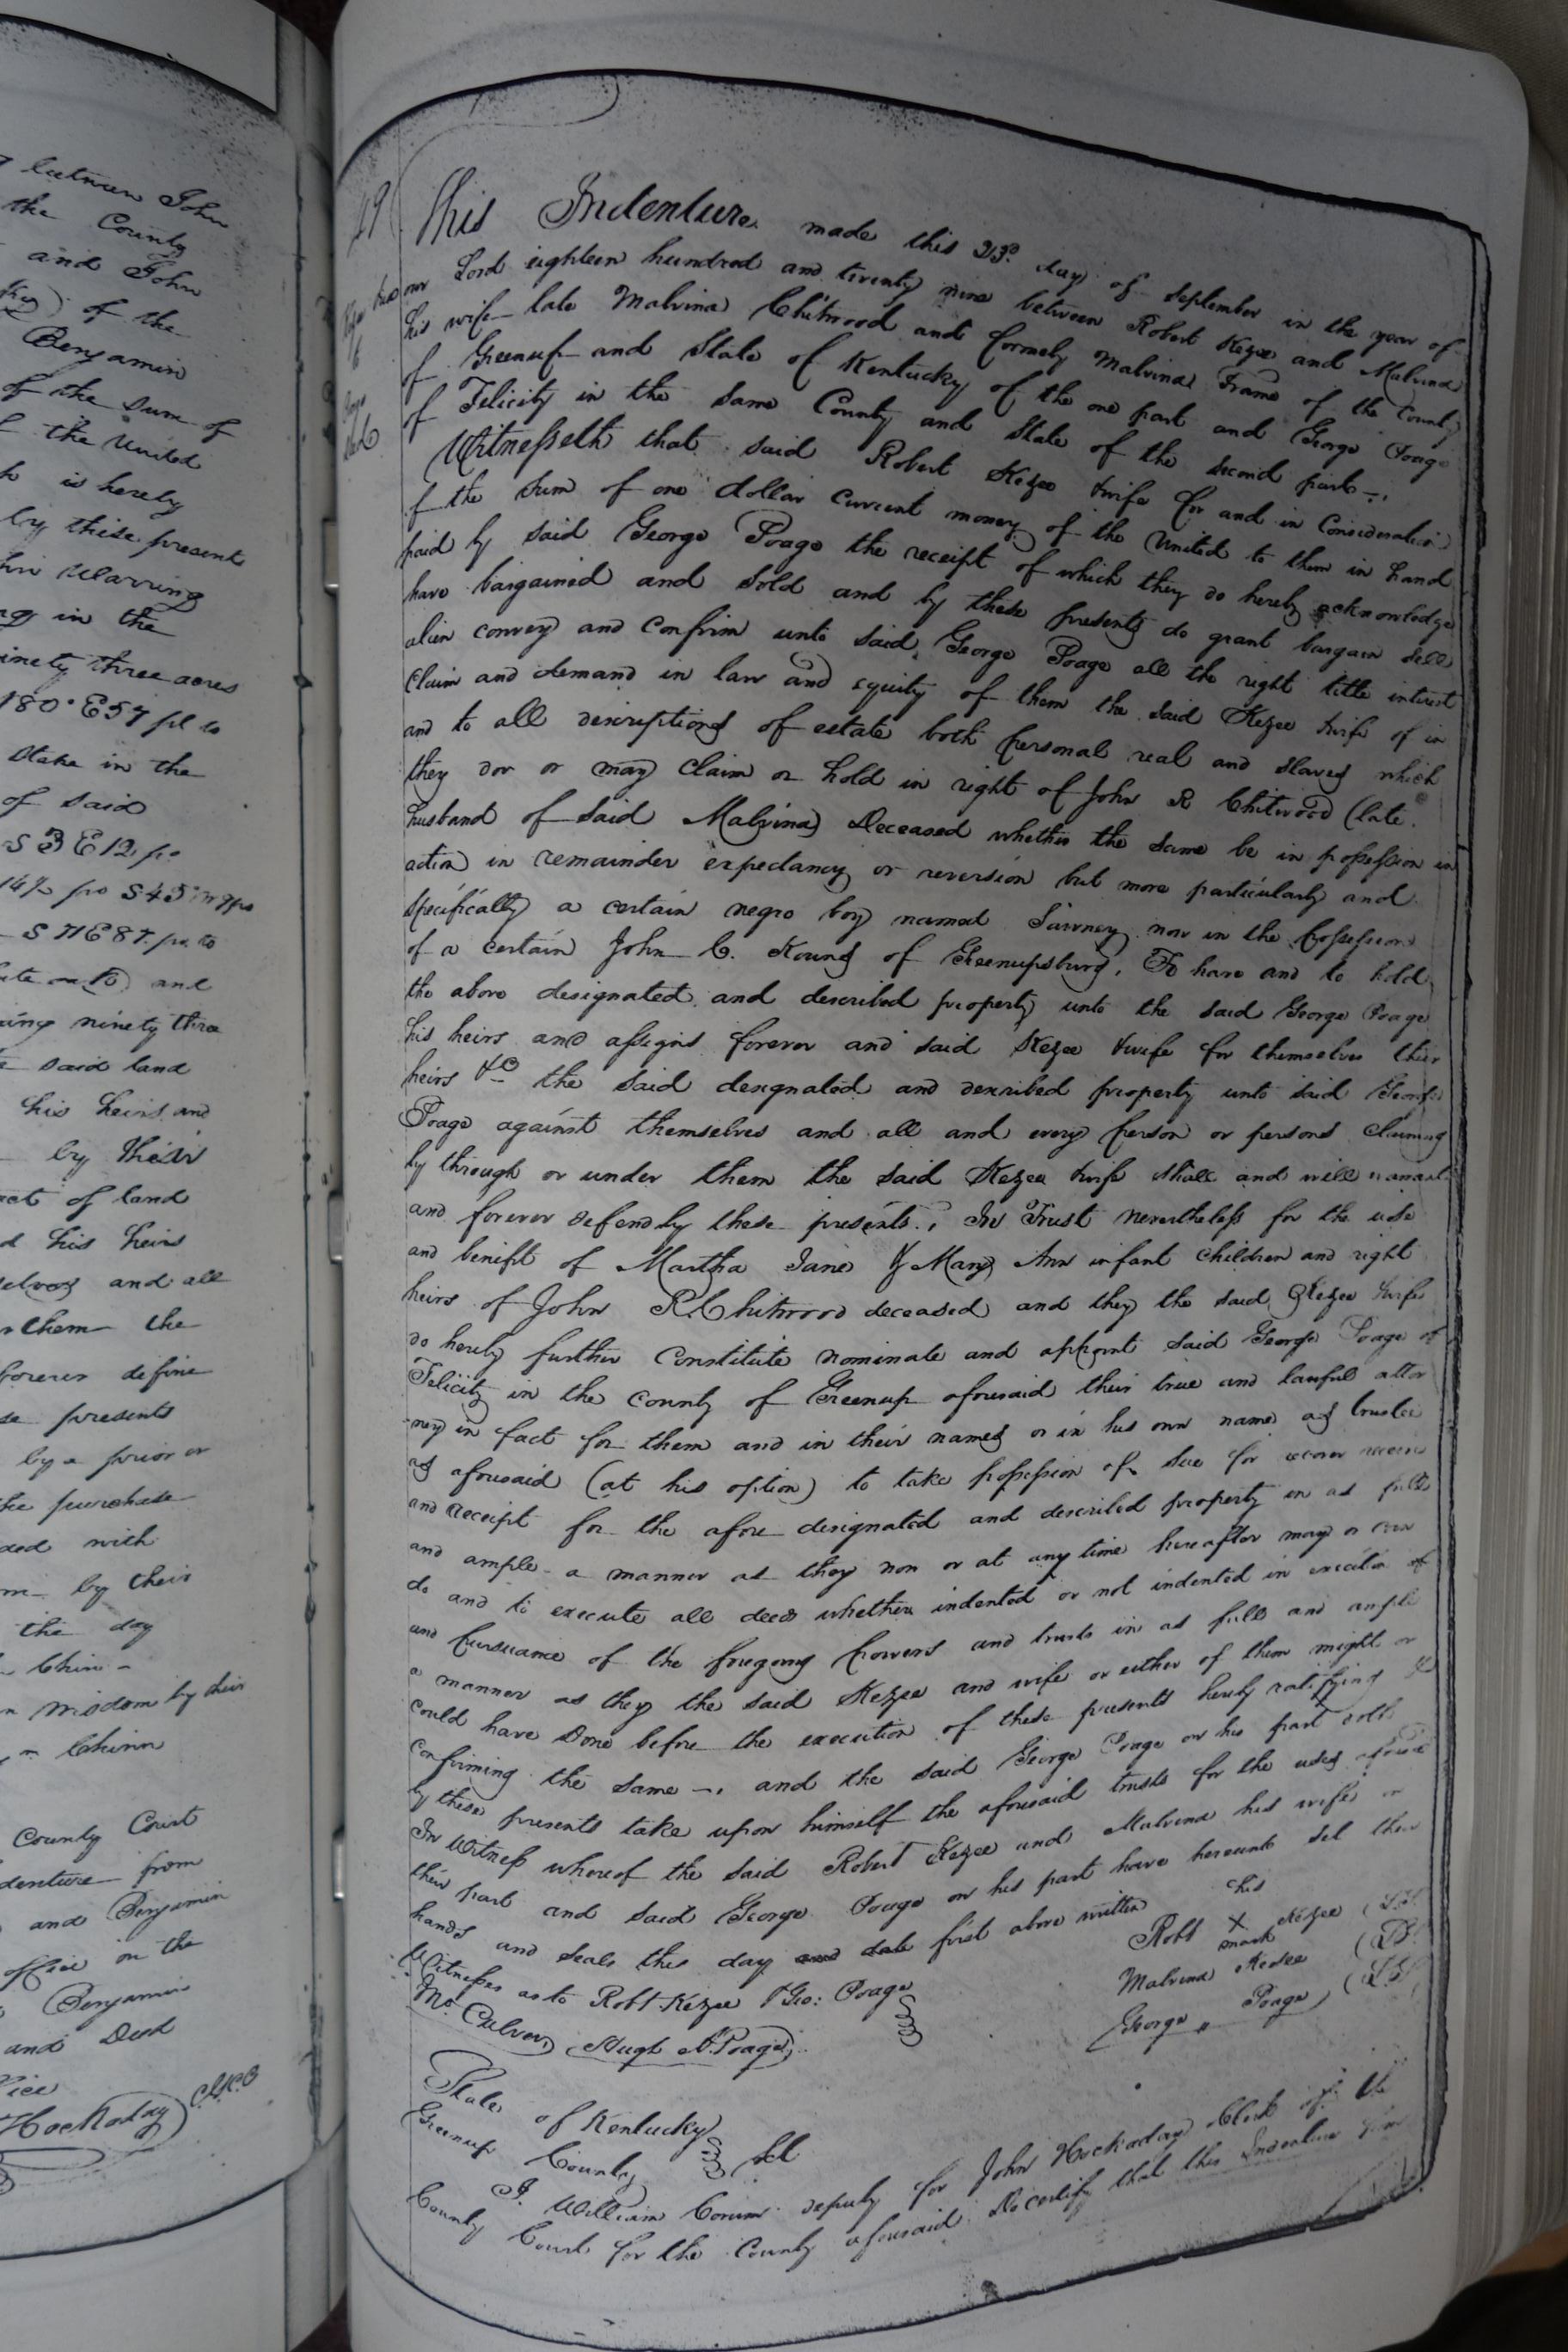 between John
the County
and John
of the
Benjamin
of the sum of
the United
is hereby
by these present
Warring
in the
ninety three acres
180° E 57 pl to
Stake in the
of said
S 3 E 12 po
14½ po S 43
S 71 E 87 po. to
and
ninety three
said land
his heirs and
by their
of land
his heirs
and all
them the
define
presents
by a prior or
the purchase
with
by their
the day
Chinn
Wisdom by their
Chinn
County Court
denture from
and Benjamin
office on the
Benjamin
and Deed
Hockaday C.G.C.C
This Indenture made this 23d day of September in the year of
our Lord eighteen hundred and twenty nine between Robert Kezee and Malvina
his wife late Malvina Chitwood and formely Malvina Frame of the County
of Greenup and State of Kentucky of the one part and George Poage
of Felicity in the same County and State of the second part —.
Witnesseth that said Robert Kezee & wife for and in Consideration
of the sum of one dollar current money of the United to them in hand
paid by said George Poage the receipt of which they do hereby acknowledge
have bargained and sold and by these presents do grant bargain sell
alien convey and confirm unto said George Poage all the right title interest
claim and demand in law and equity of them the said Kezee & wife of in
and to all descriptions of estate both personal real and slaves which
they dov or may claim or hold in right of John R Chitwood (late
husband of said Malvina) Deceased whether the same be in possession in
action in remainder expectancy or reversion but more particularly and
specifically a certain negro boy named now in the possession
of a certain John C. Young of Greenupsburg. To have and to hold
the above designated and described property unto the said George Poage
his heirs and assigns forever and said Kezee & wife for themselves their
heirs &c the said designated and described property unto said George
Poage against themselves and all and every person or persons claiming
by through or under them the said Kezee & wife shall and will warrant
and forever defend by these presents. In Trust nevertheless for the use
and benifit of Martha Jane & Mary Ann infant children and right
heirs of John R. Chitwood deceased and they the said Kezee & wife
do hereby further constitute nominate and appoint said George Poage of
Felicity in the county of Greenup aforesaid their true and lawful attor
ney in fact for them and in their names or in his own name as trustee
as aforesaid (at his option) to take possession of sue for recover receive
and receipt for the afore designated and described property in as full
and ample a manner as they now or at any time hereafter may or can
do and to execute all deeds whether indented or not indented in execution of
and pursuance of the foregoing powers and trusts in as full and ample
a manner as they the said Kezee and wife or either of them might or
could have done before the execution of these presents hereby ratifying &
confirming the same —. and the said George Poage on his part doth
by these presents take upon himself the aforesaid trusts for the uses aforesaid
In Witness whereof the said Robert Kezee and Malvina his wife on
their part and said George Poage on his part have hereunto set their
hands and seals this day and date first above written
his
Robt X Kezee (L.S.
mark
Witnesses as to Robt Kezee & Geo: Poage
Malvina Kezee (L.S.
Mc Culver, Hugh A. Poage
George Poage (L.S.
State of Kentucky
Greenup County Sct
I William Corum deputy for John Hockaday Clerk of the
County Court for the County aforesaid Do certify that this Indenture from